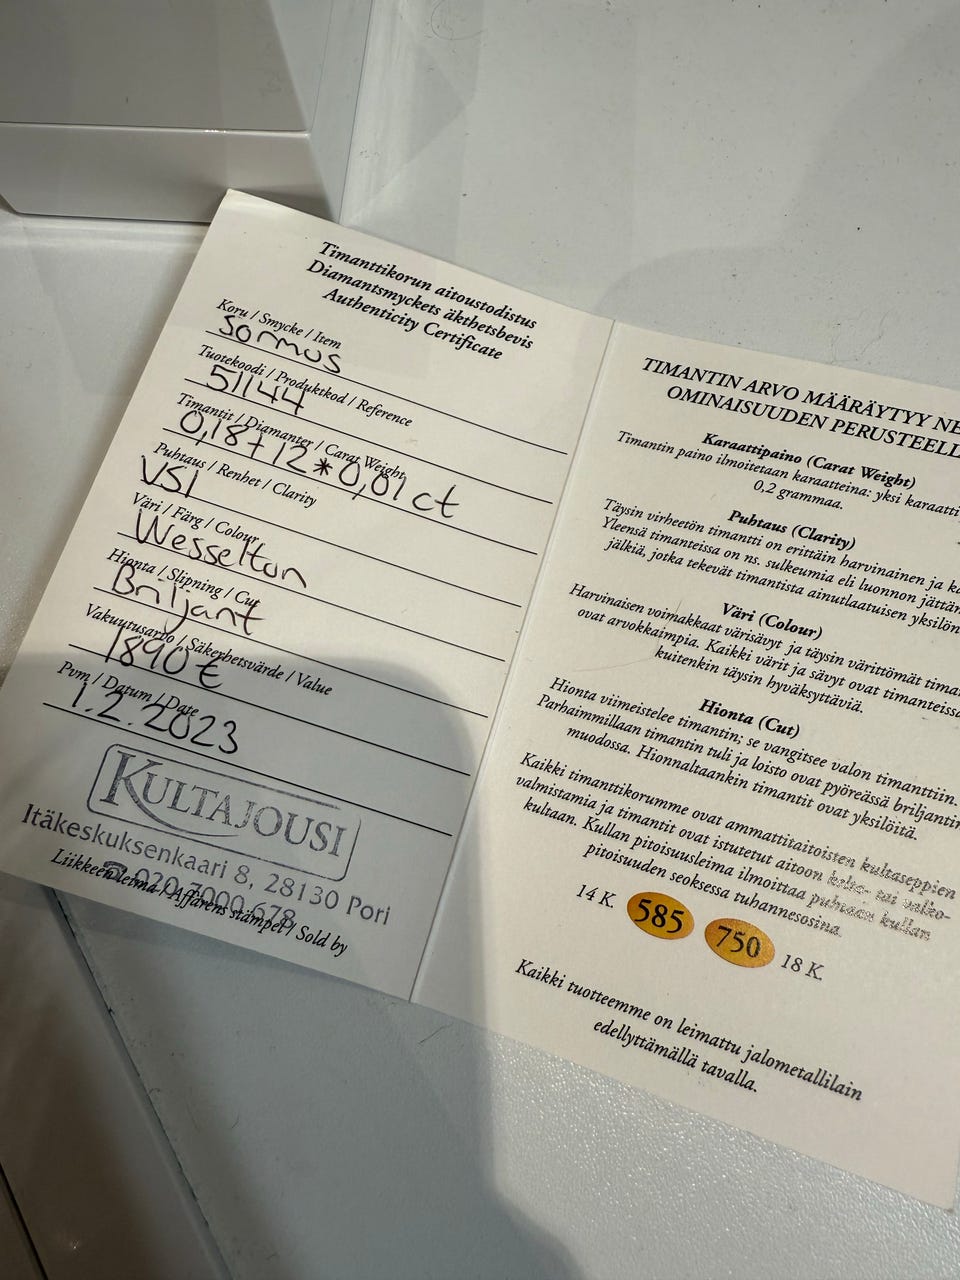 Timanttikorun aitoustodistus
Diamantsmyckets äkthetsbevis
Authenticity Certificate
Koru / Smycke / Item
Sormus
Tuotekoodi / Produktkod / Reference
51144
Timantit / Diamanter / Carat Weight
0,18+12*0,01 ct
Puhtaus / Renhet / Clarity
VSI
Väri / Färg / Colour
Wesselton
Hionta / Slipning / Cut
Briljant
Vakuutusarvo / Säkerhetsvärde / Value
1890 €
Pvm / Datum / Date
1.2.2023
KULTAJOUSI
Itäkeskuksenkaari 8, 28130 Pori
☎ 020 7000 678
Liikkeen leima / Affärens stämpel / Sold by
TIMANTIN ARVO MÄÄRÄYTYY NE
OMINAISUUDEN PERUSTEELL
Karaattipaino (Carat Weight)
Timantin paino ilmoitetaan karaatteina: yksi karaatti
0,2 grammaa.
Puhtaus (Clarity)
Täysin virheetön timantti on erittäin harvinainen ja ka
Yleensä timanteissa on ns. sulkeumia eli luonnon jättäm
jälkiä, jotka tekevät timantista ainutlaatuisen yksilön
Väri (Colour)
Harvinaisen voimakkaat värisävyt ja täysin värittömät timan
ovat arvokkaimpia. Kaikki värit ja sävyt ovat timanteissa
kuitenkin täysin hyväksyttäviä.
Hionta (Cut)
Hionta viimeistelee timantin; se vangitsee valon timanttiin.
Parhaimmillaan timantin tuli ja loisto ovat pyöreässä briljantin
muodossa. Hionnaltaankin timantit ovat yksilöitä.
Kaikki timanttikorumme ovat ammattitaitoisten kultaseppien
valmistamia ja timantit ovat istutetut aitoon kelta- tai valko-
kultaan. Kullan pitoisuusleima ilmoittaa puhtaan kullan
pitoisuuden seoksessa tuhannesosina.
14 K. 585 750 18 K.
Kaikki tuotteemme on leimattu jalometallilain
edellyttämällä tavalla.